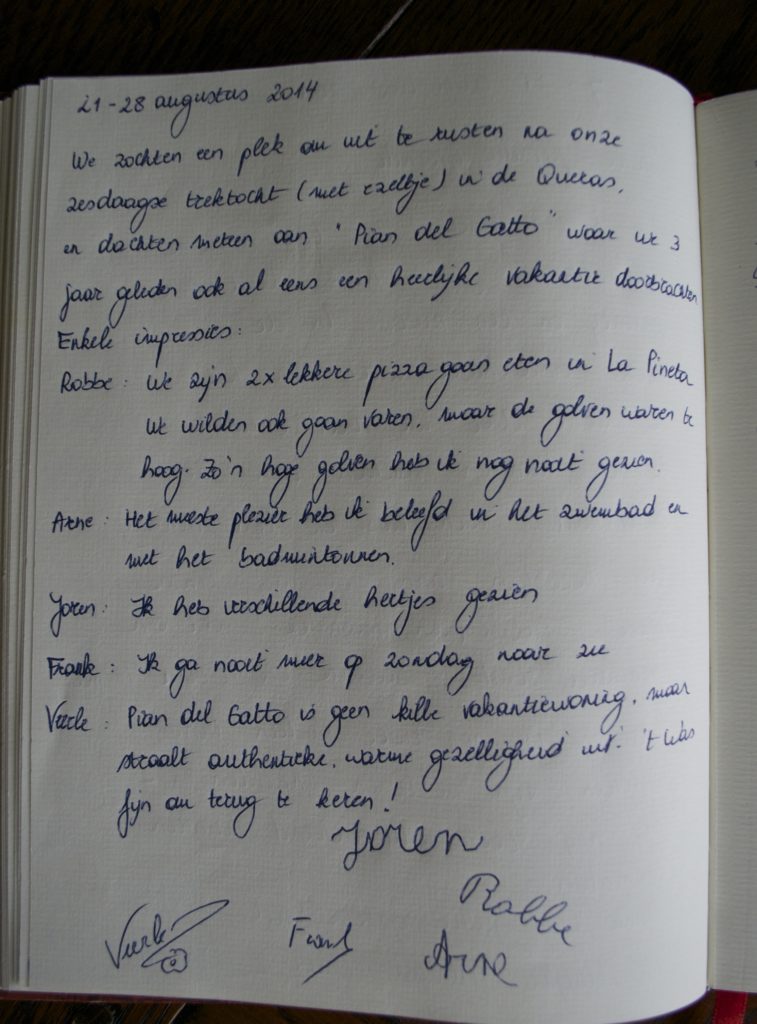 21-28 augustus 2014
We zochten een plek om uit te rusten na onze
zesdaagse trektocht (met ezeltje) in de Queras,
en dachten meteen aan "Pian del Gatto" waar we 3
jaar geleden ook al eens een heerlijke vakantie doorbrachten
Enkele impressies:
Robbe: We zijn 2x lekkere pizza gaan eten in La Pineta
We wilden ook gaan varen, maar de golven waren te
hoog. Zo'n hoge golven heb ik nog nooit gezien.
Arne: Het meeste plezier heb ik beleefd in het zwembad en
met het badmintonnen.
Joren: Ik heb verschillende hertjes gezien
Frank: Ik ga nooit meer op zondag naar zee
Veerle: Pian del Gatto is geen kille vakantiewoning, maar
straalt authentieke, warme gezelligheid uit. 't Was
fijn om terug te keren!
Joren
Robbe
Veerle Frank Arne